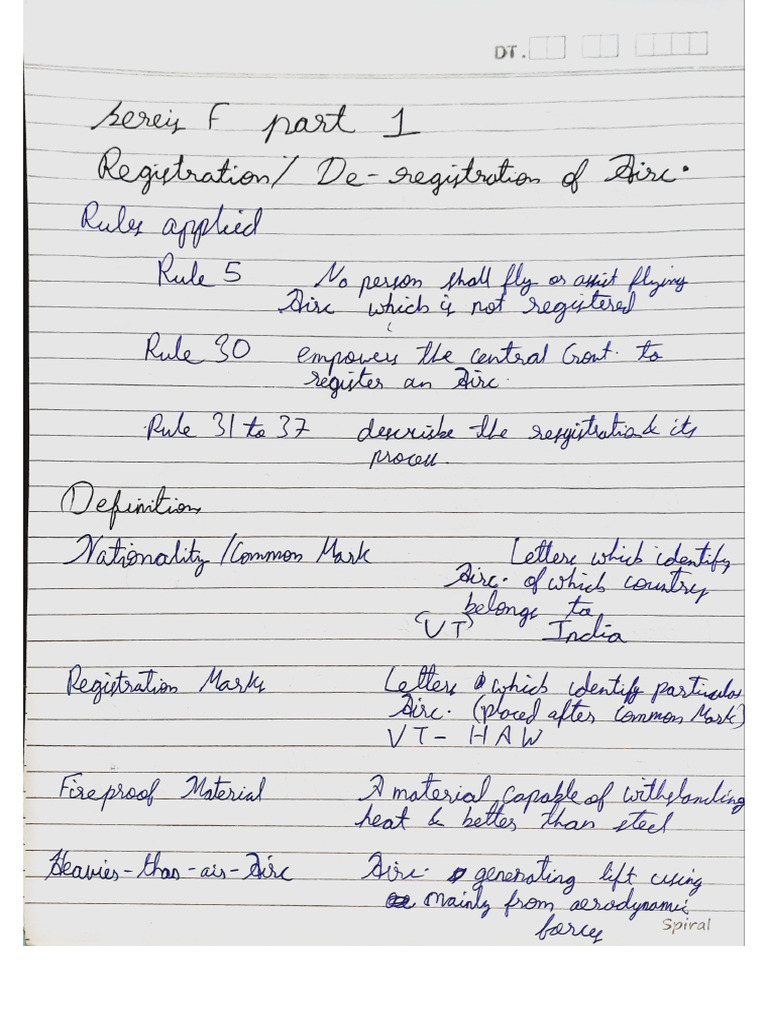 DT.
sereis F part 1
Registration / De-registration of Airc.
Rules applied
Rule 5 No person shall fly or assist flying
Airc which is not registered
Rule 30 empowers the central Govt. to
register an Airc.
Rule 31 to 37 describe the resgistration & its
process.
Definitions
Nationality / Common Mark Letters which identify
Airc. of which country
belongs to
(VT) India
Registration Marks Letters which identify particular
Airc. (placed after Common Mark)
VT - HAW
Fireproof Material A material capable of withstanding
heat & better than steel
Heavier-than-air-Airc Airc. generating lift using
mainly from aerodynamic
forces
Spiral